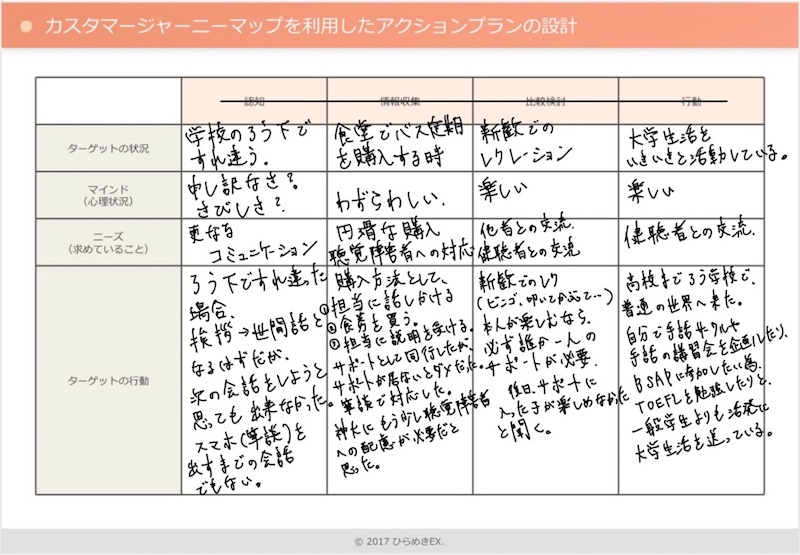 カスタマージャーニーマップを利用したアクションプランの設計
認知
情報収集
比較検討
行動
ターゲットの状況
学校のろう下で
すれ違う。
食堂でバス定期
を購入する時
新歓での
レクレーション
大学生活を
いきいきと活動している。
マインド
(心理状況)
申し訳なさ?
さびしさ?
わずらわしい.
楽しい
楽しい
ニーズ
(求めていること)
更なる
コミュニケーション
円滑な購入
聴覚障害者への対応
他者との交流.
健聴者との交流
健聴者との交流.
ターゲットの行動
ろう下ですれ違った
場合、
挨拶→世間話と
なるはずだが、
次の会話をしようと
思っても出来なかった。
スマホ(筆談)を
出すまでの会話
でもない。
購入方法として、
①担当に話しかける
②食券を買う。
③担当に説明を受ける。
サポートとして同行したが、
サポートが居ないとダメだった。
筆談で対応した。
神大にもう少し聴覚障害者
への配慮が必要だと
思った。
新歓でのレク
(ビンゴ、叩いてかぶって…)
本人が楽しむなら、
必ず誰か一人の
サポートが必要.
後日、サポートに
入った子が楽しめなかった
と聞く。
高校までろう学校で、
普通の世界へ来た。
自分で手話サークルや
手話の講習会を企画したり、
BSAPに参加したい為、
TOEFLを勉強したりと、
一般学生よりも活発に
大学生活を送っている。
© 2017 ひらめきEX.